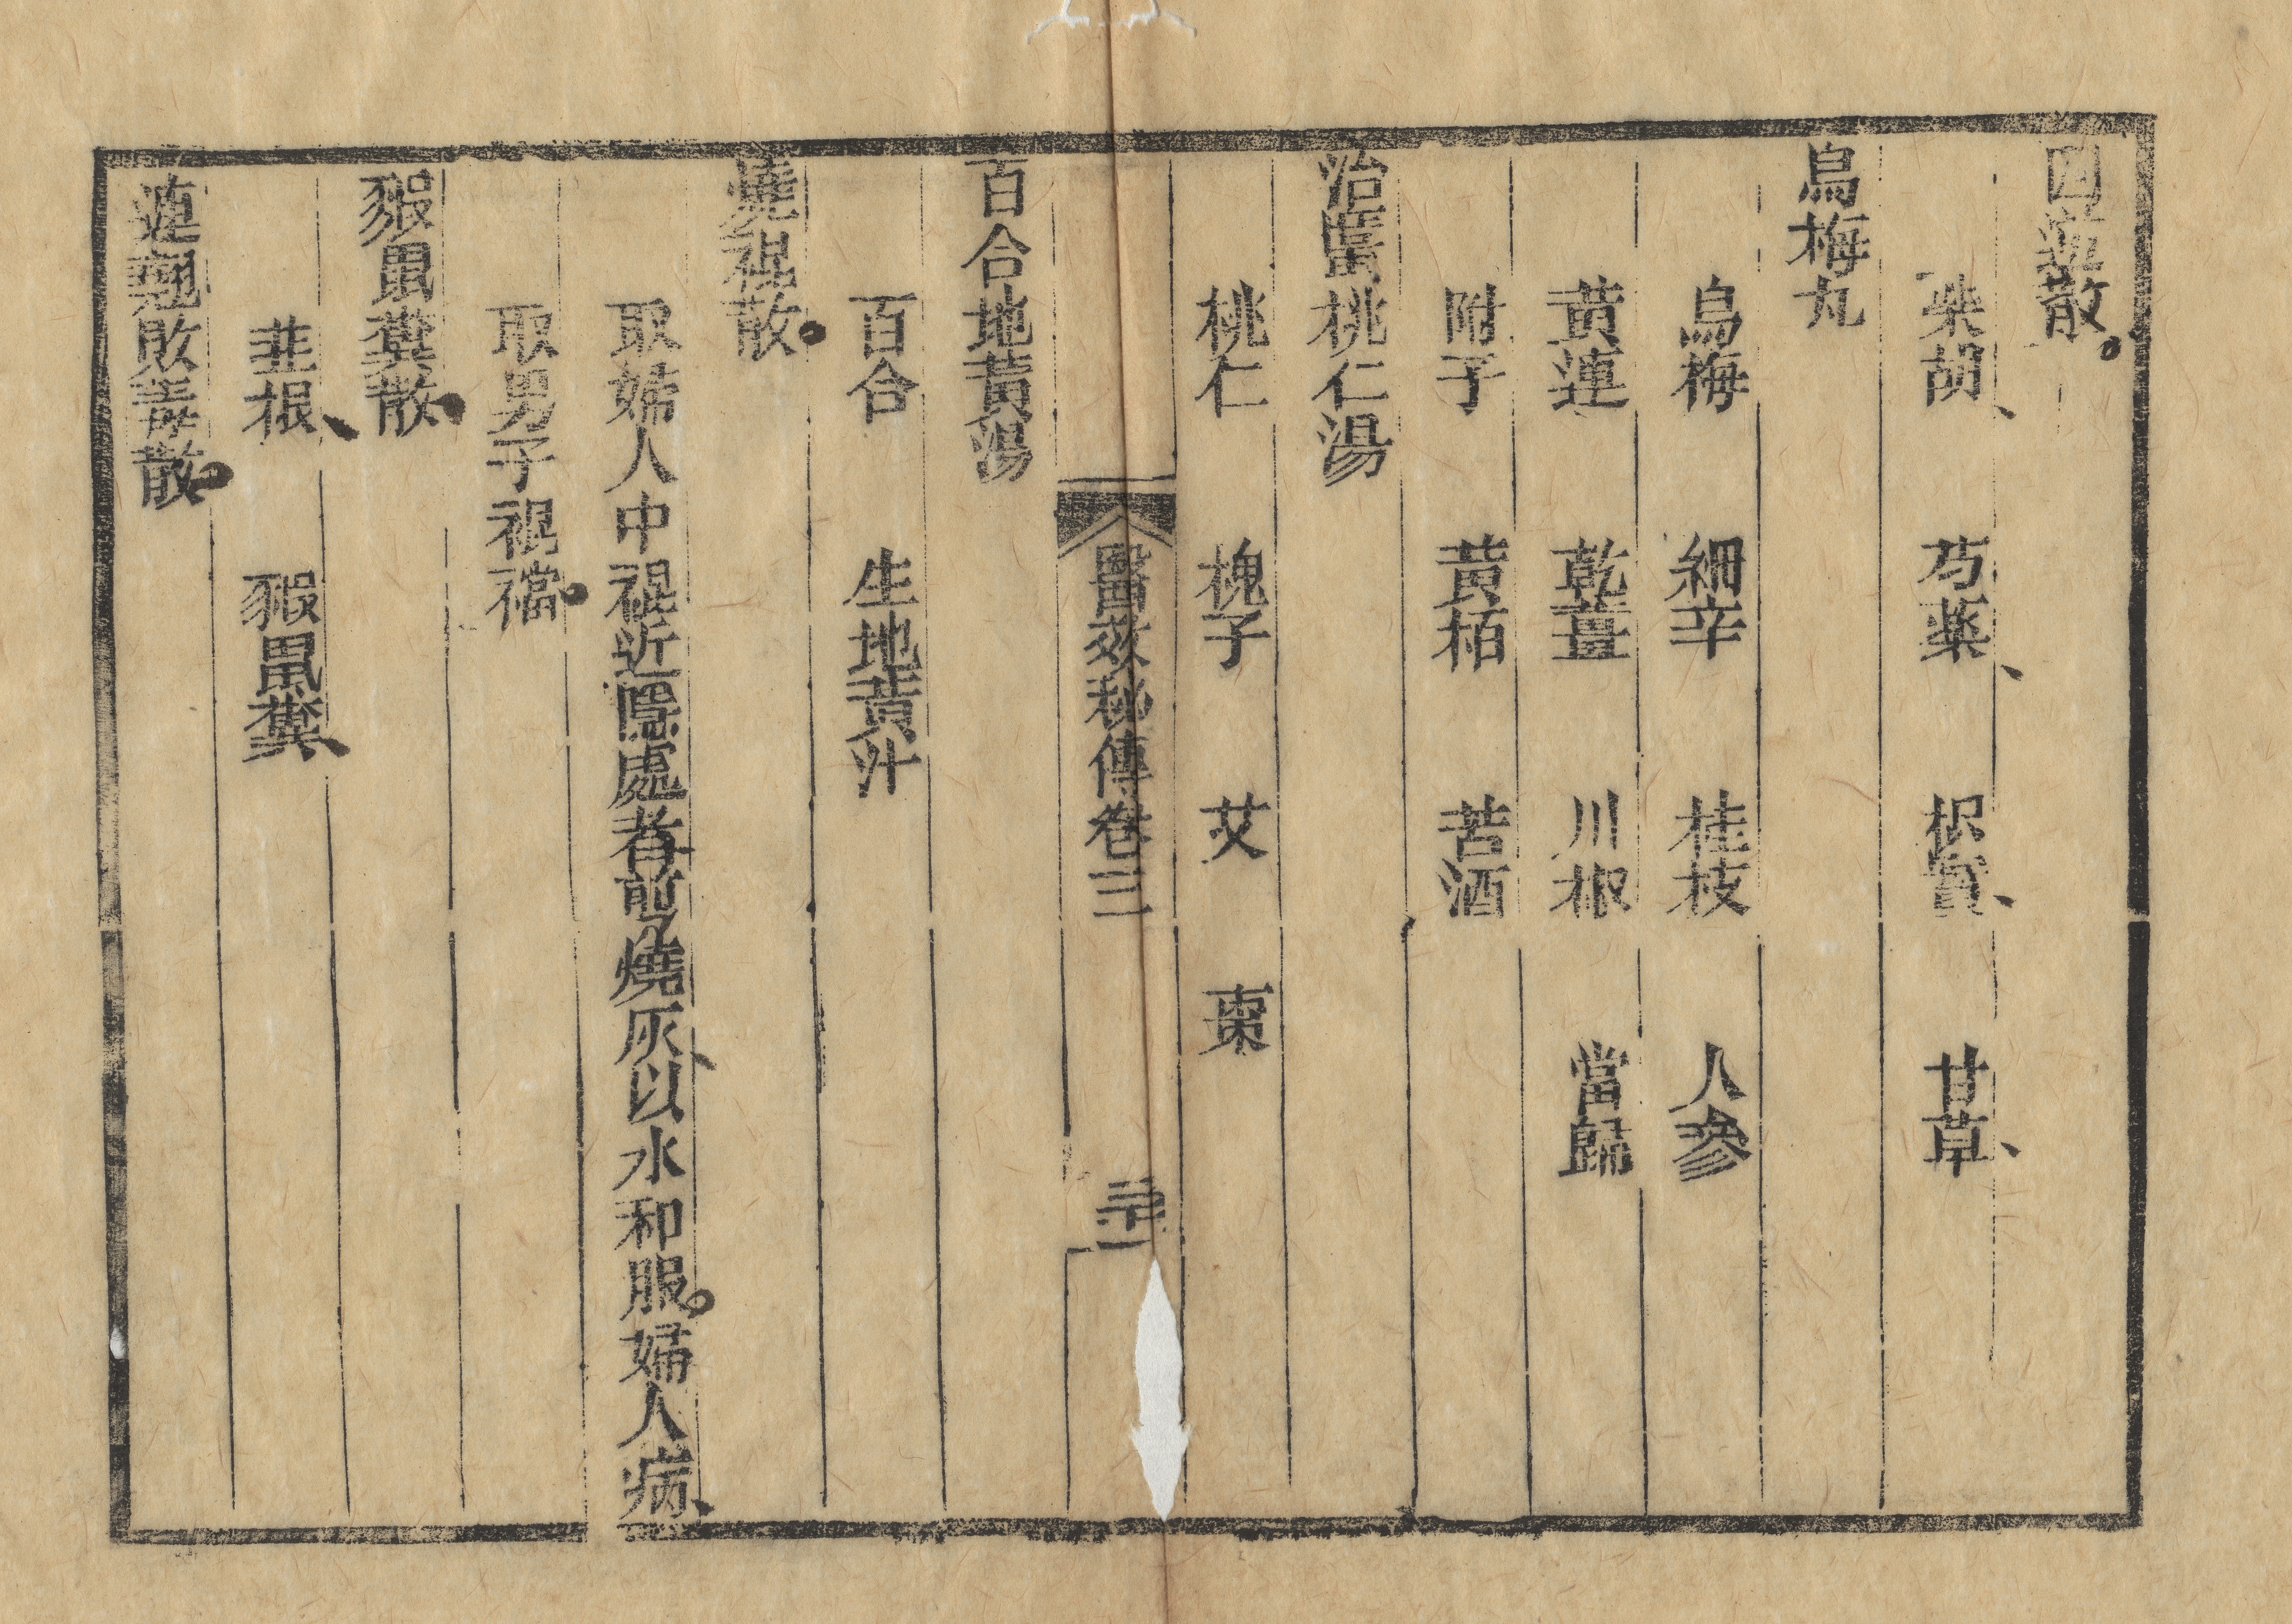 四逆散。
柴胡、 芍藥、 枳實、 甘草、
烏梅丸
烏梅 細辛 桂枝 人參
黃連 乾薑 川椒 當歸
附子 黃栢 苦酒
治䘌桃仁湯
桃仁 槐子 艾 棗
醫效秘傳卷三 三十一
百合地黃湯
百合 生地黃汁
燒裩散。
取婦人中裩近隱處者剪燒灰、以水和服。婦人病、
取男子裩襠。
豭鼠糞散。
韭根、 豭鼠糞、
連翹敗毒散。